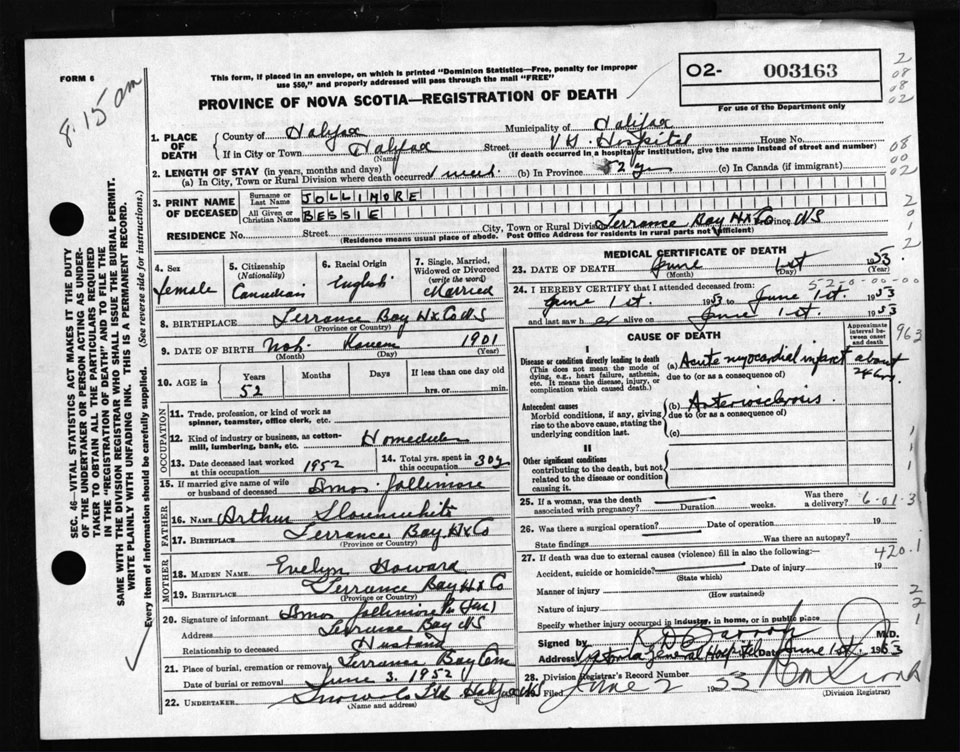 FORM 6
8.15 am
This form, if placed in an envelope, on which is printed "Dominion Statistics—Free, penalty for improper
use $50," and properly addressed will pass through the mail "FREE"
02- 003163
For use of the Department only
PROVINCE OF NOVA SCOTIA—REGISTRATION OF DEATH
2
08
08
02
08
00
02
2
0
1
2
SEC. 46—VITAL STATISTICS ACT MAKES IT THE DUTY
OF THE UNDERTAKER OR PERSON ACTING AS UNDER-
TAKER TO OBTAIN ALL THE PARTICULARS REQUIRED
IN THE "REGISTRATION OF DEATH" AND TO FILE THE
SAME WITH THE DIVISION REGISTRAR WHO SHALL ISSUE THE BURIAL PERMIT.
WRITE PLAINLY WITH UNFADING INK. THIS IS A PERMANENT RECORD.
Every item of information should be carefully supplied. (See reverse side for instructions.)
1. PLACE OF DEATH County of Halifax Municipality of Halifax
If in City or Town Halifax (Name) Street V.G. Hospital House No.
(If death occurred in a hospital or institution, give the name instead of street and number)
2. LENGTH OF STAY (in years, months and days)
(a) In City, Town or Rural Division where death occurred 1 week (b) In Province 52 yr (c) In Canada (if immigrant)
3. PRINT NAME OF DECEASED Surname or Last Name JOLLIMORE
All Given or Christian Names BESSIE
RESIDENCE No. Street City, Town or Rural Division Terrance Bay Hx Co Province NS
(Residence means usual place of abode. Post Office Address for residents in rural parts not sufficient)
4. Sex Female
5. Citizenship (Nationality) Canadian
6. Racial Origin English
7. Single, Married, Widowed or Divorced (write the word) Married
8. BIRTHPLACE Terrance Bay Hx Co NS
(Province or Country)
9. DATE OF BIRTH 1901
(Month) (Day) (Year)
10. AGE in Years 52 Months Days If less than one day old hrs. or min.
OCCUPATION
11. Trade, profession, or kind of work as
spinner, teamster, office clerk, etc.
12. Kind of industry or business, as cotton-
mill, lumbering, bank, etc. Homeduties
13. Date deceased last worked at this occupation 1952 14. Total yrs. spent in this occupation 30y
15. If married give name of wife
or husband of deceased Amos Jollimore
FATHER
16. NAME Arthur Slaunwhite
17. BIRTHPLACE Terrance Bay Hx Co
(Province or Country)
MOTHER
18. MAIDEN NAME Evelyn Howard
19. BIRTHPLACE Terrance Bay Hx Co
(Province or Country)
20. Signature of informant Amos Jollimore
Address Terranse Bay NS
Relationship to deceased Husband
21. Place of burial, cremation or removal Terranse Bay Cem
Date of burial or removal June 3. 1952
22. UNDERTAKER Snow & Co Ltd Halifax NS
(Name and address)
MEDICAL CERTIFICATE OF DEATH
23. DATE OF DEATH June 1st 1953.
(Month) (Day) (Year)
24. I HEREBY CERTIFY that I attended deceased from:
52-0-00-00
June 1st. 1953 to June 1st. 1953
and last saw her alive on June 1st. 1953
CAUSE OF DEATH
Approximate interval between onset and death
963
I
Disease or condition directly leading to death
(This does not mean the mode of dying, e.g., heart failure, asthenia, etc. It means the disease, injury, or complication which caused death.)
(a) Acute myocardial infarct about 24 hrs
due to (or as a consequence of)
Antecedent causes
Morbid conditions, if any, giving rise to the above cause, stating the underlying condition last.
(b) Arteriosclerosis.
due to (or as a consequence of)
(c)
II
Other significant conditions
contributing to the death, but not related to the disease or condition causing it.
1
1
25. If a woman, was the death associated with pregnancy? Duration weeks. Was there a delivery? 6-01-3
26. Was there a surgical operation? Date of operation 19
State findings Was there an autopsy?
27. If death was due to external causes (violence) fill in also the following:—
420.1
Accident, suicide or homicide? Date of injury 19
(State which)
Manner of injury
(How sustained)
Nature of injury
2
2
1
Specify whether injury occurred in industry, in home, or in public place
Signed by M.D.
Address Victoria General Hospital Date June 1st. 1953
28. Division Registrar's Record Number
Filed June 2 1953
(Division Registrar)